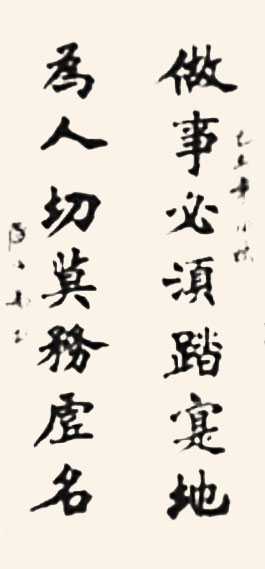 做事必須踏寔地
為人切莫務虛名